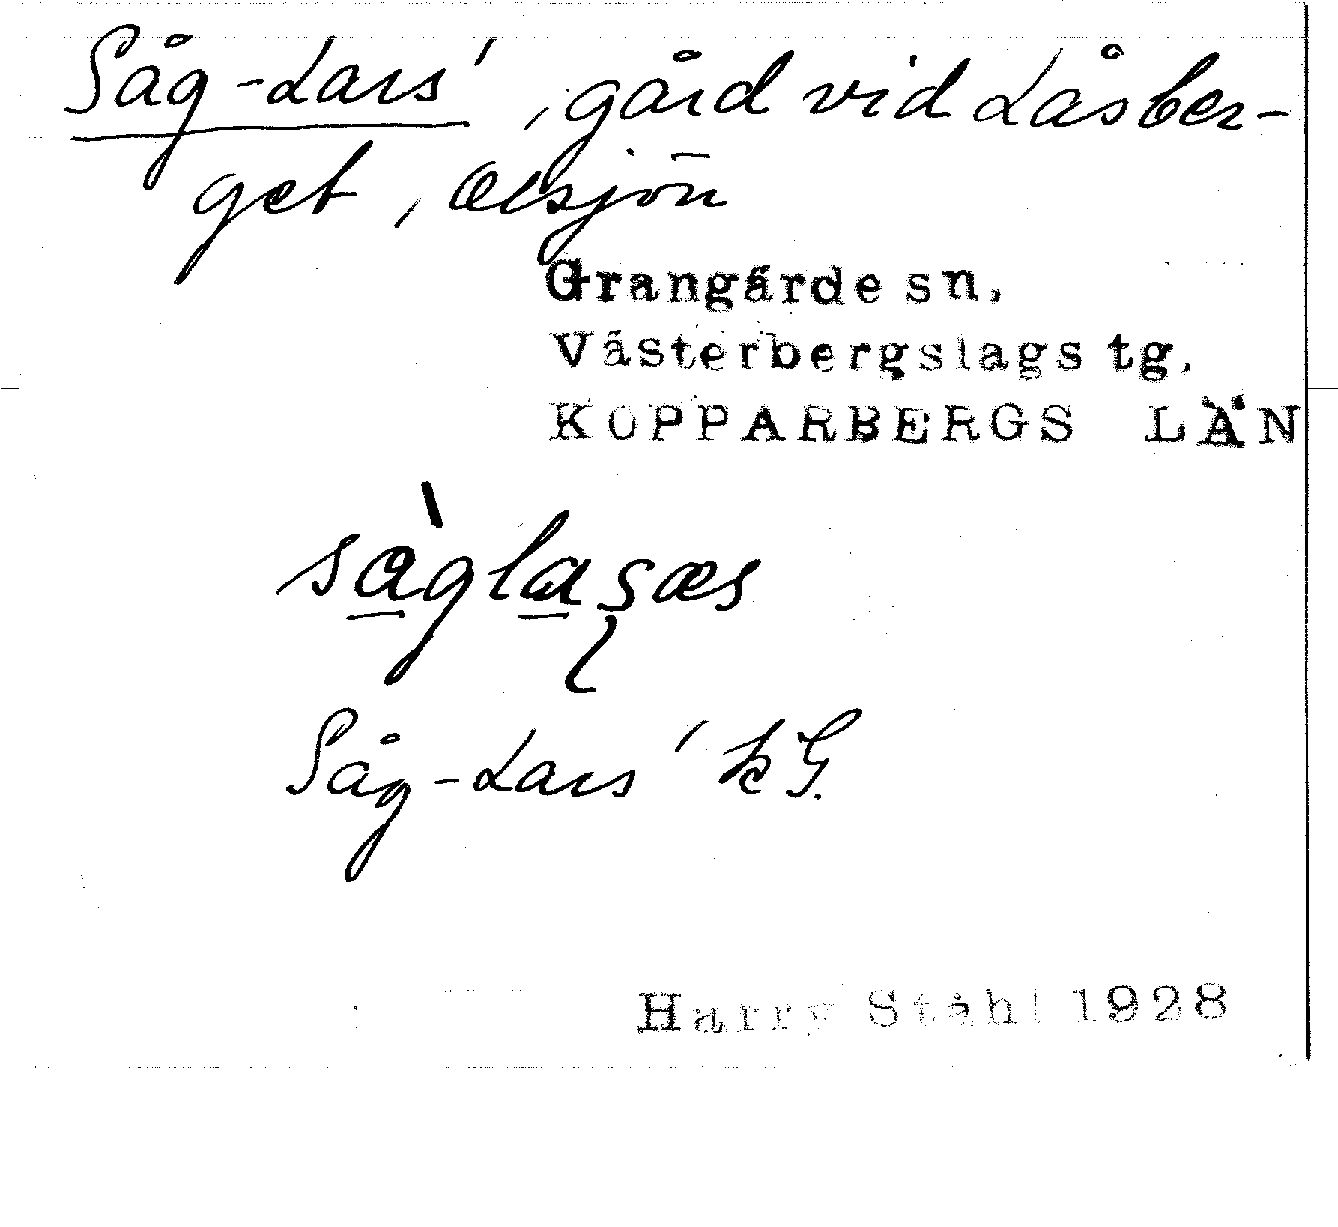 Såg-Lars', gård vid Låsber-
get, Elsjön
Grangärde sn.
Västerbergslags tg.
KOPPARBERGS LÄN
Såg-Lars' kG.
Harry Ståhl 1928